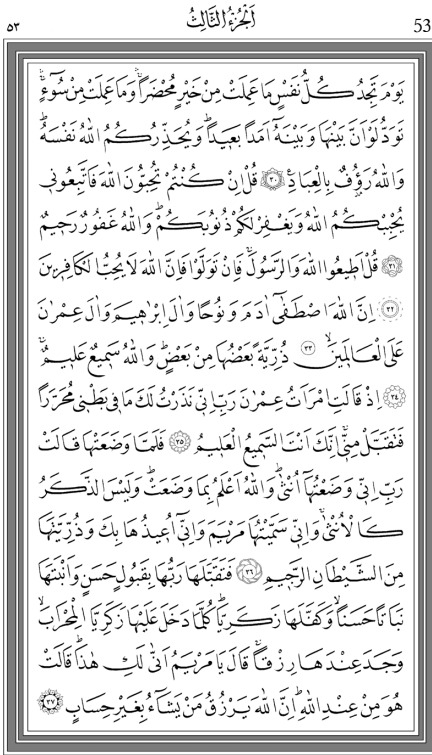 ٥٣ اَلْجُزْءُ الثَّالِثُ 53
يَوْمَ تَجِدُ كُلُّ نَفْسٍ مَا عَمِلَتْ مِنْ خَيْرٍ مُحْضَرًاۚ وَمَا عَمِلَتْ مِنْ سُٓوءٍۚ
تَوَدُّ لَوْ اَنَّ بَيْنَهَا وَبَيْنَهُٓ اَمَدًا بَعِيدًاۜ وَيُحَذِّرُكُمُ اللّٰهُ نَفْسَهُۜ
وَاللّٰهُ رَؤُ۫فٌ بِالْعِبَادِ۟ ﴿٣٠﴾ قُلْ اِنْ كُنْتُمْ تُحِبُّونَ اللّٰهَ فَاتَّبِعُونٖي
يُحْبِبْكُمُ اللّٰهُ وَيَغْفِرْ لَكُمْ ذُنُوبَكُمْۜ وَاللّٰهُ غَفُورٌ رَحٖيمٌ
﴿٣١﴾ قُلْ اَطٖيعُوا اللّٰهَ وَالرَّسُولَۚ فَاِنْ تَوَلَّوْا فَاِنَّ اللّٰهَ لَا يُحِبُّ الْكَافِرٖينَ
﴿٣٢﴾ اِنَّ اللّٰهَ اصْطَفٰٓى اٰدَمَ وَنُوحًا وَاٰلَ اِبْرٰهٖيمَ وَاٰلَ عِمْرٰنَ
عَلَى الْعَالَمٖينَۙ ﴿٣٣﴾ ذُرِّيَّةً بَعْضُهَا مِنْ بَعْضٍۜ وَاللّٰهُ سَمٖيعٌ عَلٖيمٌۚ
﴿٣٤﴾ اِذْ قَالَتِ امْرَاَتُ عِمْرٰنَ رَبِّ اِنّٖي نَذَرْتُ لَكَ مَا فٖي بَطْنٖي مُحَرَّرًا
فَتَقَبَّلْ مِنّٖيۚ اِنَّكَ اَنْتَ السَّمٖيعُ الْعَلٖيمُ ﴿٣٥﴾ فَلَمَّا وَضَعَتْهَا قَالَتْ
رَبِّ اِنّٖي وَضَعْتُهَٓا اُنْثٰىۜ وَاللّٰهُ اَعْلَمُ بِمَا وَضَعَتْۜ وَلَيْسَ الذَّكَرُ
كَالْاُنْثٰىۚ وَاِنّٖي سَمَّيْتُهَا مَرْيَمَ وَاِنّٖٓي اُعٖيذُهَا بِكَ وَذُرِّيَّتَهَا
مِنَ الشَّيْطَانِ الرَّجٖيمِ ﴿٣٦﴾ فَتَقَبَّلَهَا رَبُّهَا بِقَبُولٍ حَسَنٍ وَاَنْبَتَهَا
نَبَاتًا حَسَنًاۙ وَكَفَّلَهَا زَكَرِيَّاۜ كُلَّمَا دَخَلَ عَلَيْهَا زَكَرِيَّا الْمِحْرَابَۙ
وَجَدَ عِنْدَهَا رِزْقًاۚ قَالَ يَا مَرْيَمُ اَنّٰى لَكِ هٰذَاۜ قَالَتْ
هُوَ مِنْ عِنْدِ اللّٰهِۜ اِنَّ اللّٰهَ يَرْزُقُ مَنْ يَشَٓاءُ بِغَيْرِ حِسَابٍ ﴿٣٧﴾